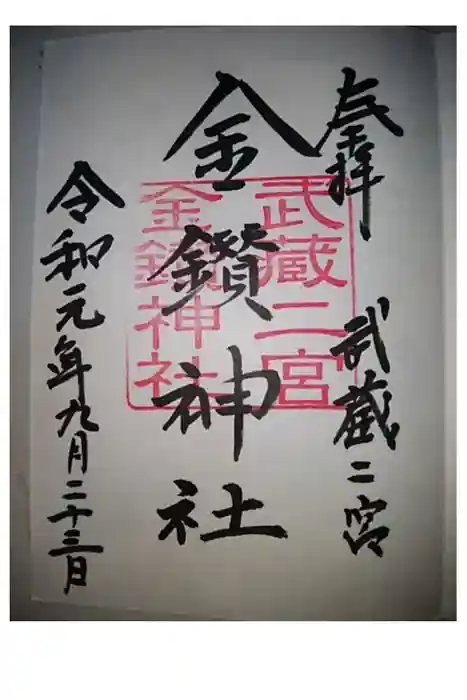 奉拝
武蔵二宮
金鑚神社
武蔵二宮
金鑚神社
令和元年九月二十三日